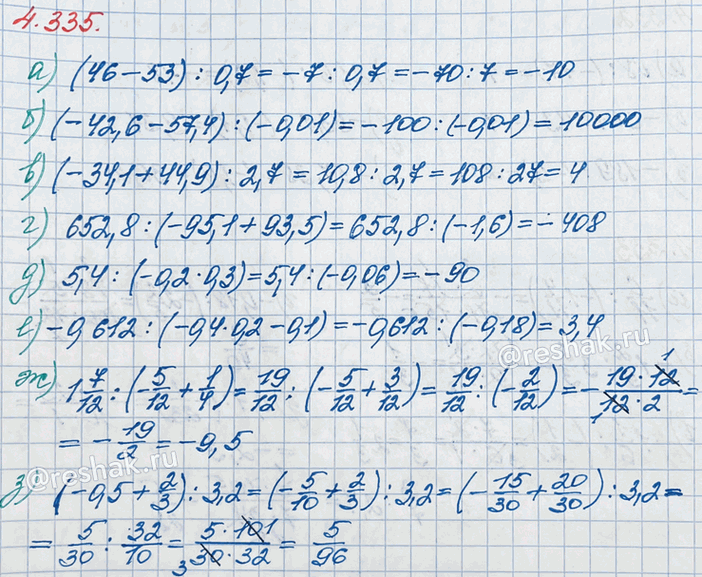 4.335.
а) (46-53) : 0,7 = -7 : 0,7 = -70 : 7 = -10
б) (-42,6-57,4) : (-0,01) = -100 : (-0,01) = 10000
в) (-34,1+44,9) : 2,7 = 10,8 : 2,7 = 108 : 27 = 4
г) 652,8 : (-95,1+93,5) = 652,8 : (-1,6) = -408
д) 5,4 : (-0,2·0,3) = 5,4 : (-0,06) = -90
е) -0,612 : (-0,4·0,2-0,1) = -0,612 : (-0,18) = 3,4
@reshak.ru
ж) 1 7/12 : (-5/12 + 1/4) = 19/12 : (-5/12 + 3/12) = 19/12 : (-2/12) = - 19·12 1/1 12·2 =
= - 19/2 = -9,5
@reshak.ru
з) (-0,5 + 2/3) : 3,2 = (-5/10 + 2/3) : 3,2 = (-15/30 + 20/30) : 3,2 =
= 5/30 : 32/10 = 5·10 1/3 30·32 = 5/96